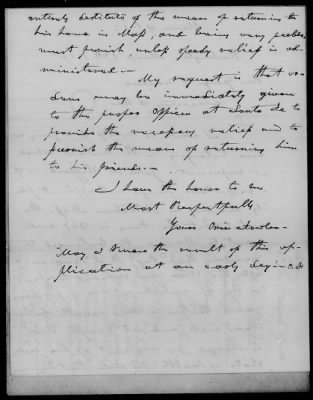 entirely destitute of the means of returning to
his home in Mass, and being very feeble,
must perish, unless speedy relief is ad-
ministered.—
My request is that or-
ders may be immediately given
to the proper officer at Santa Fe to
provide the necessary relief and to
furnish the means of returning him
to his friends.—
I have the honor to be
Most Respectfully
Yours Orin Fowler—
May I know the result of this ap-
plication at an early day—O.F.